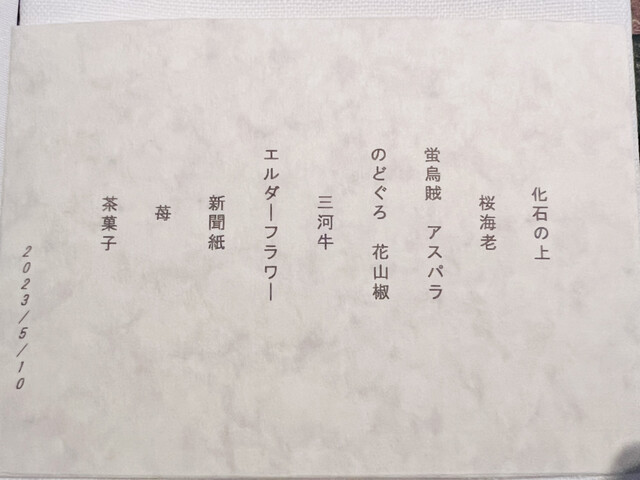 化石の上
桜海老
蛍烏賊 アスパラ
のどぐろ 花山椒
三河牛
エルダーフラワー
新聞紙
苺
茶菓子
2023/5/10